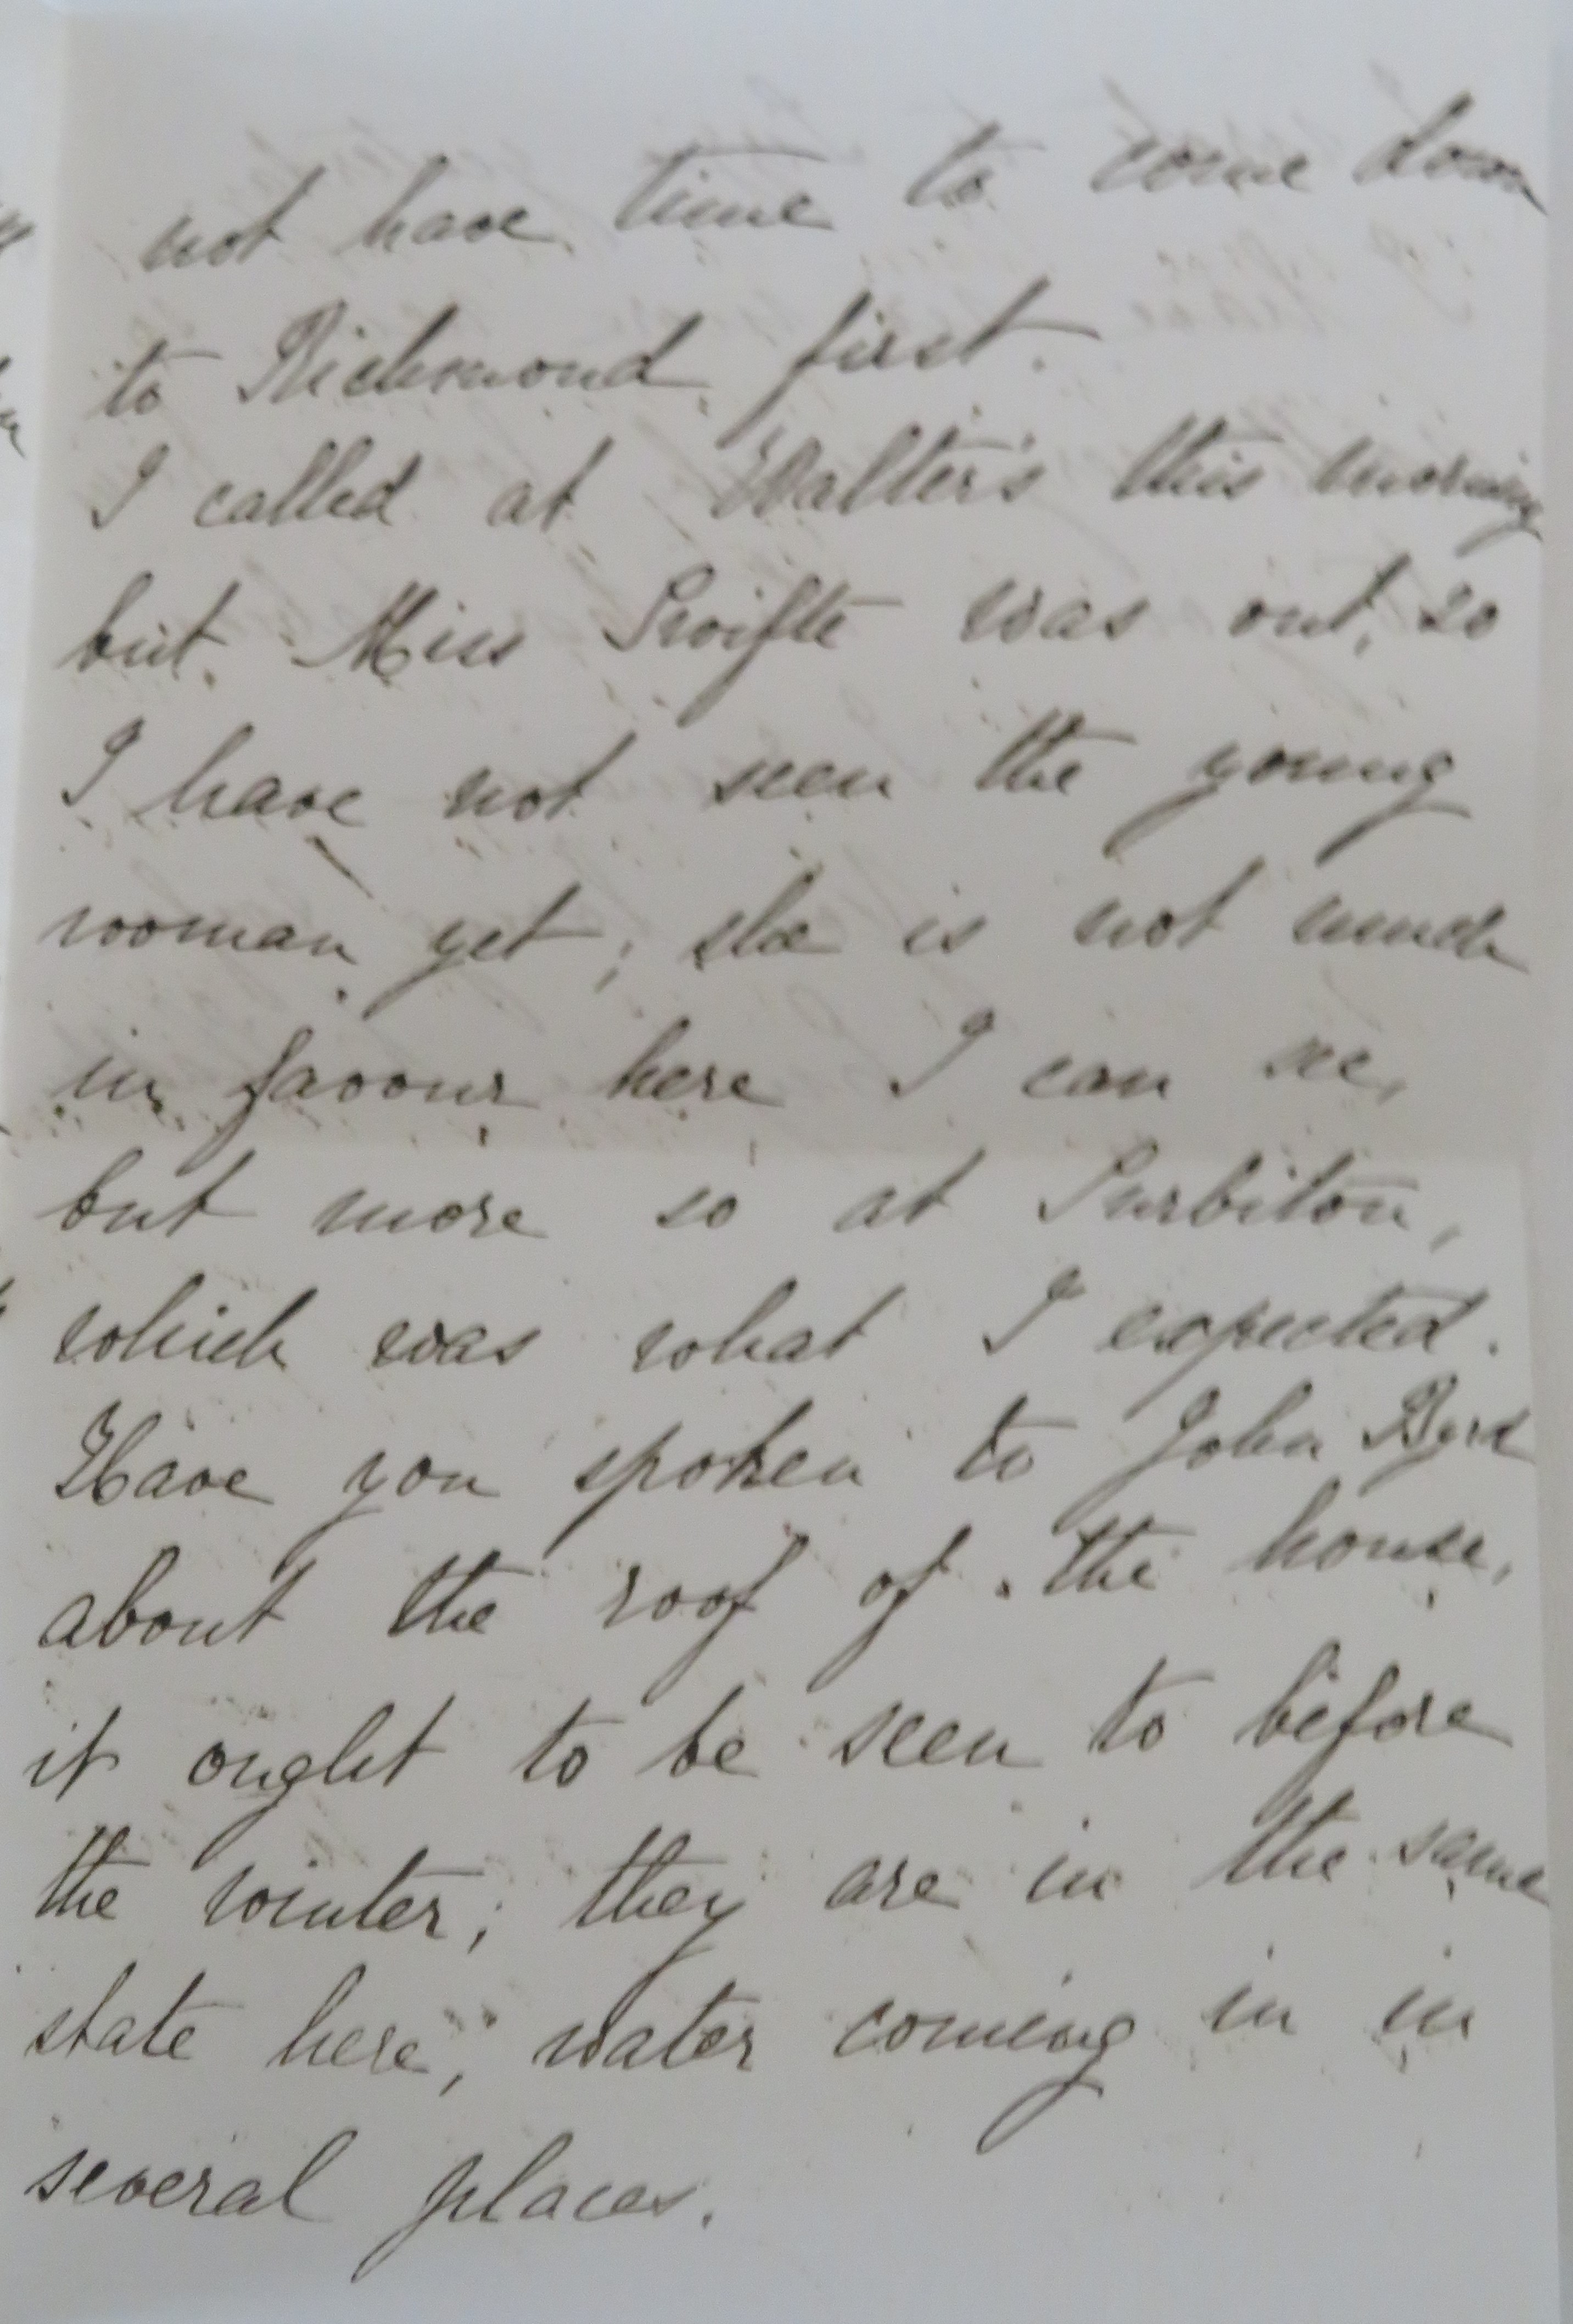 not have time to come down
to Richmond first.
I called at Walter's this morning
but Miss Swifte was out, so
I have not seen the young
woman yet; she is not much
in favour here I can see,
but more so at Surbiton,
which was what I expected.
Have you spoken to John Byrd
about the roof of the house,
it ought to be seen to before
the winter; they are in the same
state here; water coming in in
several places.